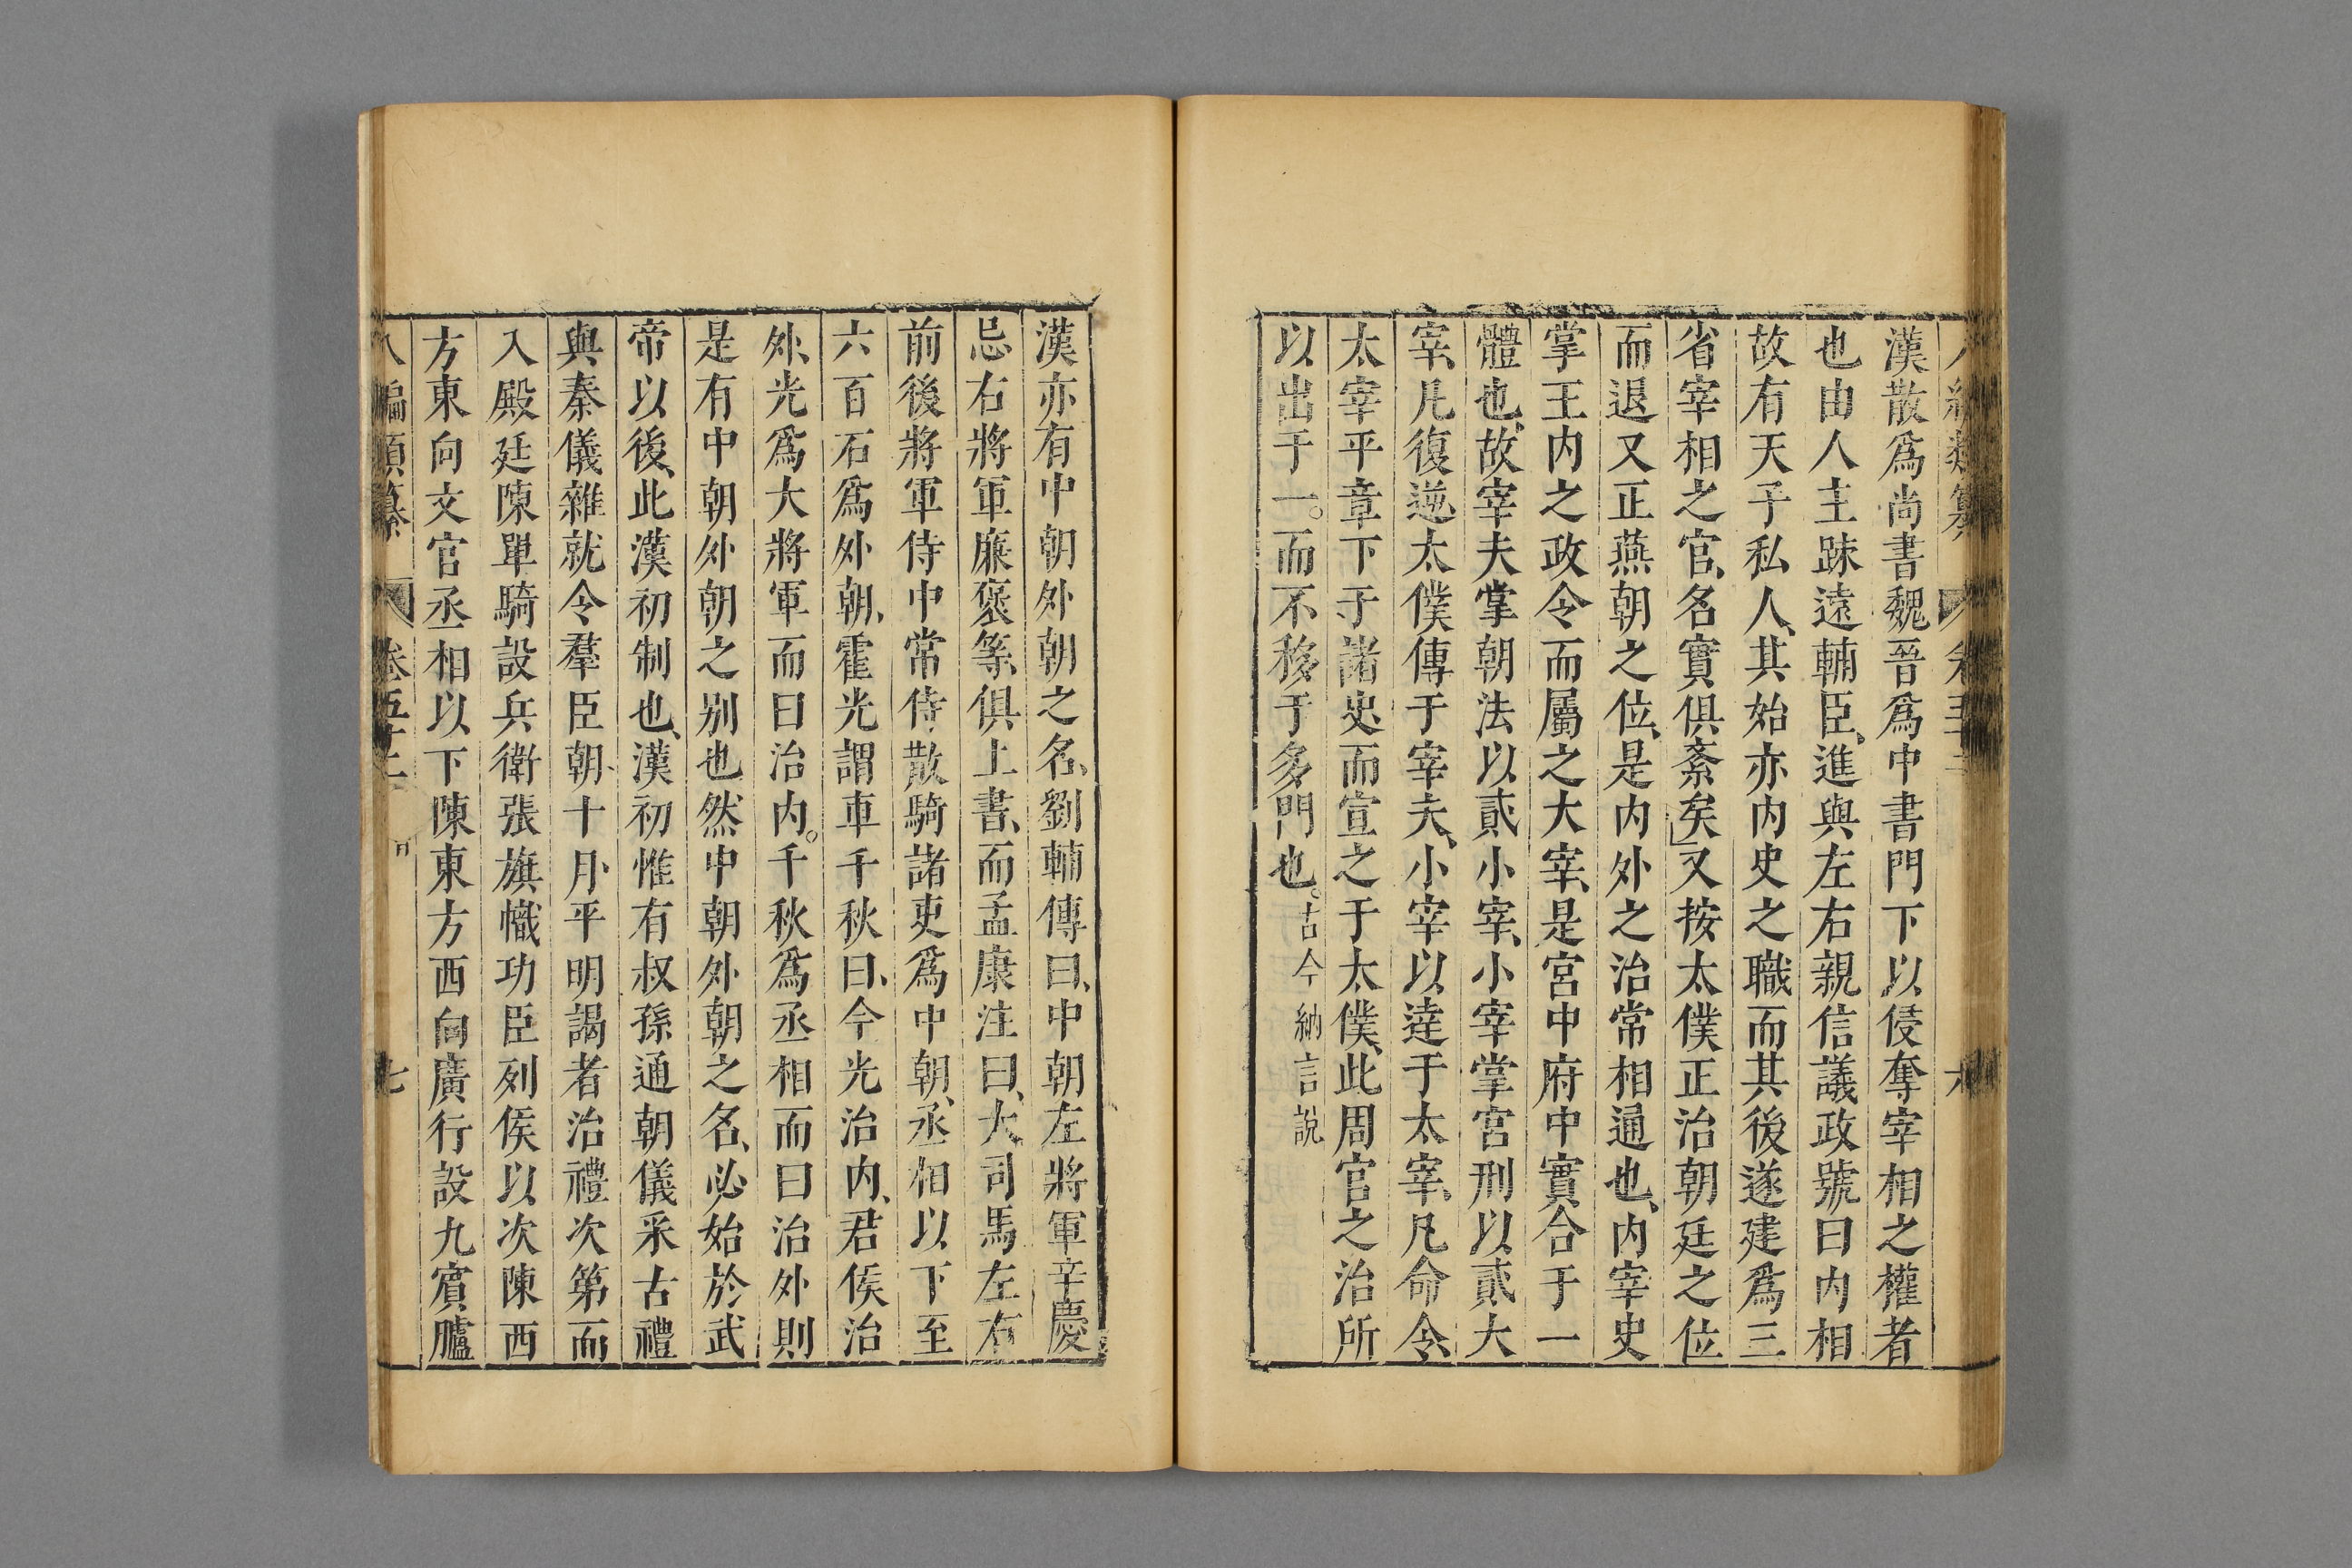 漢散爲尚書魏晉爲中書門下以侵奪宰相之權者
也由人主踈遠輔臣、進與左右親信議政號曰内相
故有天子私人、其始亦内史之職而其後遂建爲三
省宰相之官、名實俱紊矣」又按太僕正治朝廷之位
而退又正燕朝之位、是内外之治常相通也、内宰史
掌王内之政令而屬之大宰、是宮中府中實合于一
體也、故宰夫掌朝法以貳小宰、小宰掌宮刑以貳大
宰、凡復逆太僕傳于宰夫、小宰以達于太宰、凡命令
太宰平章下于諸史而宣之于太僕、此周官之治所
以出于一。而不移于多門也。古今納言説
漢亦有中朝外朝之名、劉輔傳曰、中朝左將軍辛慶
忌右將軍廉褒等、俱上書、而孟康注曰、大司馬左右
前後將軍侍中常侍散騎諸吏爲中朝、丞相以下至
六百石爲外朝、霍光謂車千秋曰、今光治内、君侯治
外、光爲大將軍而曰治内。千秋爲丞相而曰治外則
是有中朝外朝之别也、然中朝外朝之名、必始於武
帝以後、此漢初制也、漢初惟有叔孫通朝儀采古禮
與秦儀雜就令羣臣朝十月、平明謁者治禮次第而
入殿廷陳單騎設兵衛張旗幟功臣列侯以次陳西
方東向文官丞相以下陳東方西向廣行設九賓臚
八編類纂 卷五十二 七